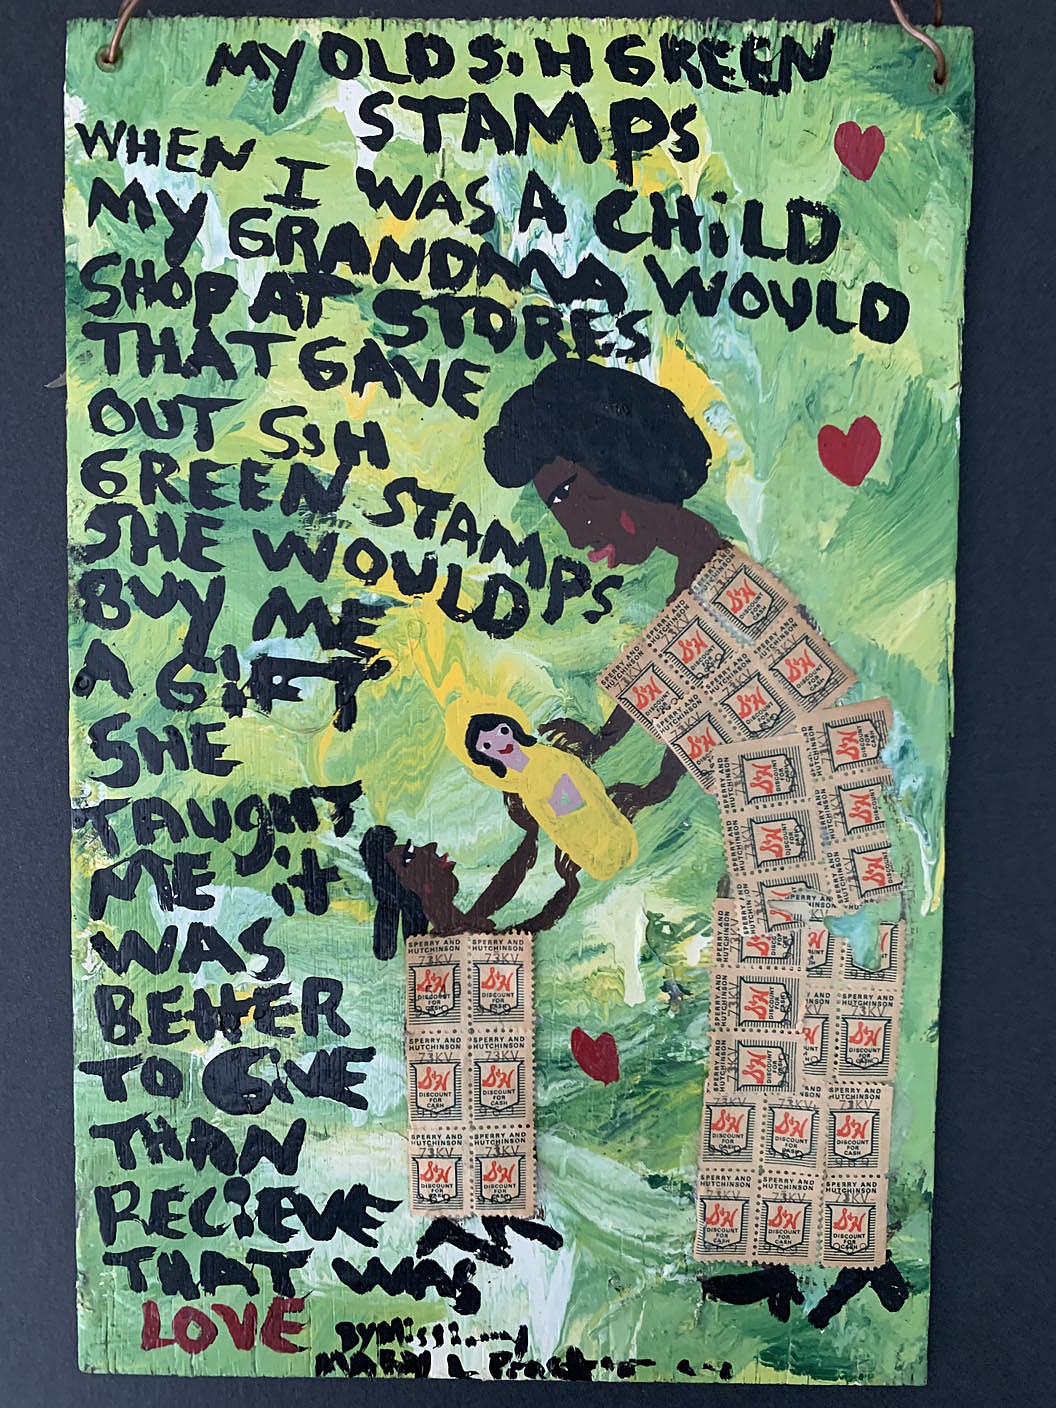 MY OLD S&H GREEN
STAMPS
WHEN I WAS A CHiLD
MY GRANDMA WOULD
SHOP AT STORES
THAT GAVE
OUT S&H
GREEN STAMPS
SHE WOULD
BUY ME
A GiFT
SHE
TAUgHT
ME it
WAS
BETTER
TO GiVE
THAN
RECiEVE
THAT WAS
LOVE
BY Missionary
MARY L Proctor
SPERRY AND
HUTCHINSON
73KV
S&H
DISCOUNT
FOR
CASH